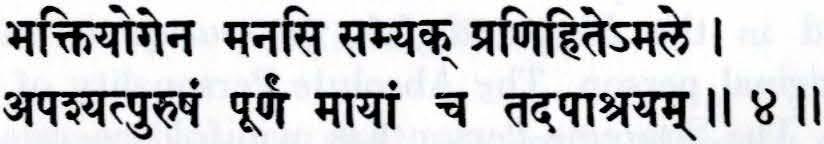 भक्तियोगेन मनसि सम्यक् प्रणिहितेऽमले ।
अपश्यत्पुरुषं पूर्णं मायां च तदपाश्रयम् ॥ ४ ॥